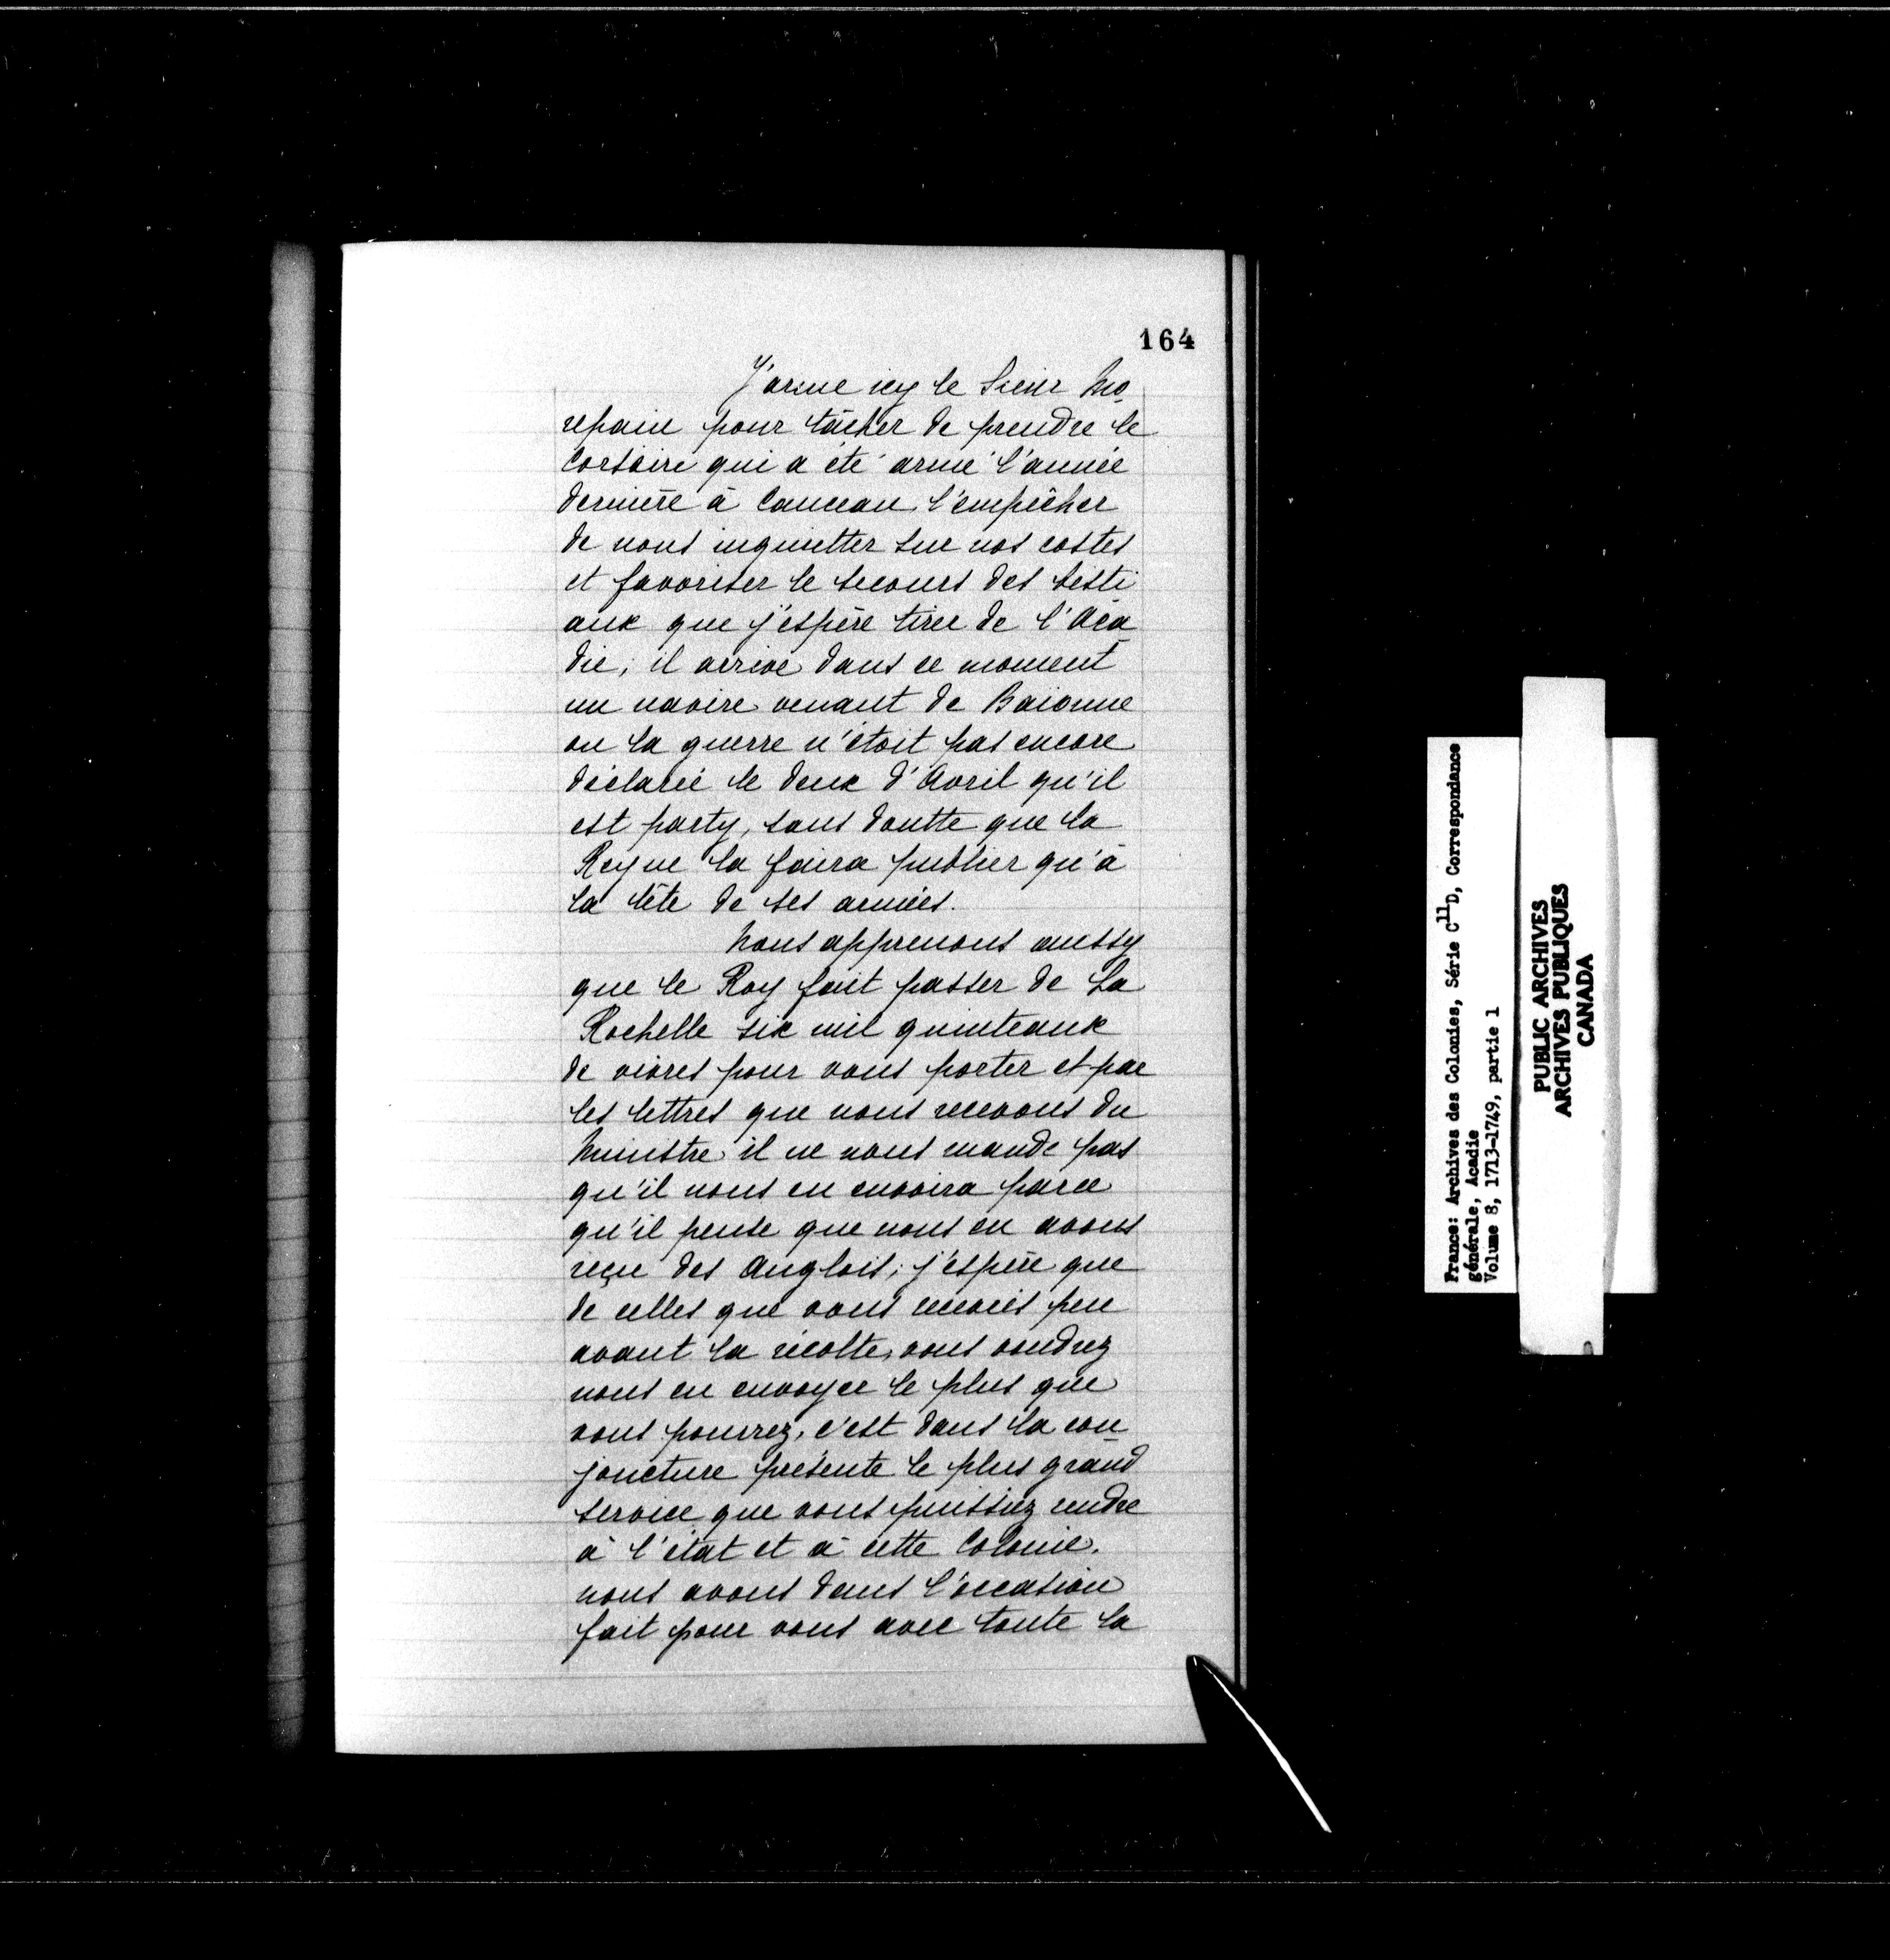 164
J'arme icy le Sieur Mo
repain pour tâcher de prendre le
Corsaire qui a été armé l'année
dernière à Canceau, l'empêcher
de nous inquietter sur nos costes
et favoriser le secours des besti
aux que j'espère tirer de l'Aca
die; il arrive dans ce moment
un navire venant de Baionne
ou la guerre n'étoit pas encore
déclarée le deux d'Avril qu'il
est party, sans doutte que la
Reyne la faira publier qu'à
la tête de ses armées.
Nous apprenons aussy
que le Roy fait passer de La
Rochelle six mil quinteaux
de vivres pour vous porter et par
les lettres que nous recevons du
Ministre il ne nous mande pas
qu'il nous en envoira parce
qu'il pense que nous en avons
reçu des Anglois; j'espère que
de celles que vous recevrés peu
avant la récolte, vous voudrez
nous en envoyer le plus que
vous pourrez, c'est dans la con
joncture présente le plus grand
service que vous puissiez rendre
à l'état et à cette Colonie.
nous avons dans l'occasion
fait pour vous avec toute la
France: Archives des Colonies, Série C11D, Correspondance
générale, Acadie
Volume 8, 1713-1749, partie 1
PUBLIC ARCHIVES
ARCHIVES PUBLIQUES
CANADA